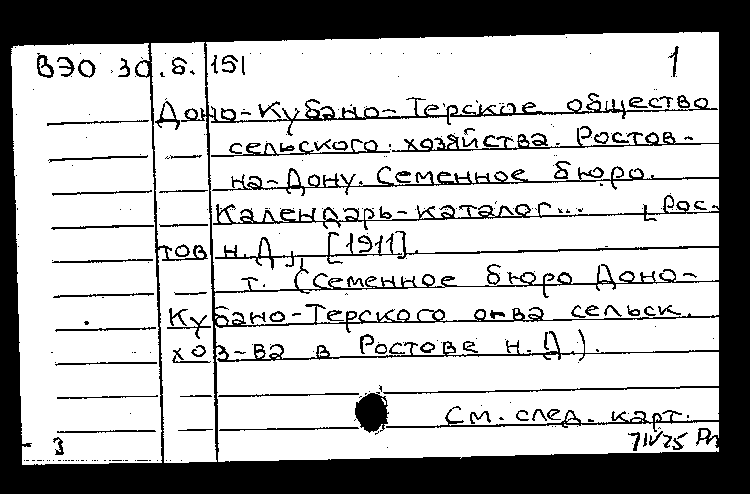 ВЭО 30.8.151 1
Доно-Кубано-Терское общество
сельского хозяйства. Ростов-
на-Дону. Семенное бюро.
Календарь-каталог... [Рос-
тов н.Д], [1911].
т. (Семенное бюро Доно-
Кубано-Терского о-ва сельск.
хоз-ва в Ростове н.Д.).
См. след. карт.
3